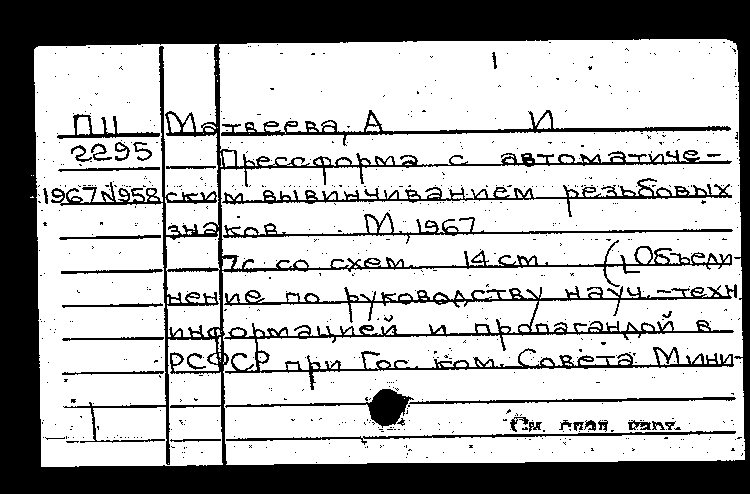 ПII Матвеева, А И
2295 Прессформа с автоматиче-
1967№958 ским вывинчиванием резьбовых
знаков. М., 1967
7с со схем. 14 см. (Объеди-
нение по руководству науч.-техн
информацией и пропагандой в
РСФСР при Гос. ком. Совета Мини-
См. след. карт.